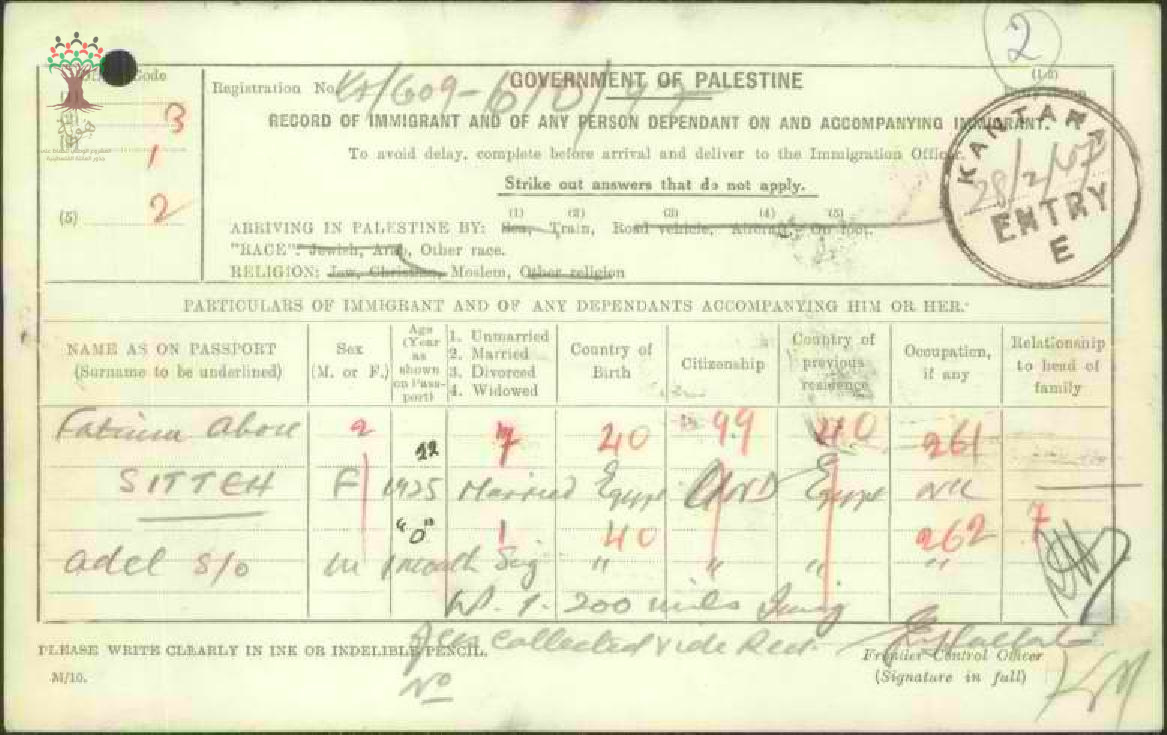 2
GOVERNMENT OF PALESTINE
Registration No.
RECORD OF IMMIGRANT AND OF ANY PERSON DEPENDANT ON AND ACCOMPANYING IMMIGRANT.
To avoid delay, complete before arrival and deliver to the Immigration Officer.
Strike out answers that do not apply.
3
1
(5) 2
KANTARA
28/2/47
ENTRY
E
(1) (2) (3) (4) (5)
ARRIVING IN PALESTINE BY: Sea, Train, Road vehicle, Aircraft, On foot.
"RACE": Jewish, Arab, Other race.
RELIGION: Jew, Christian, Moslem, Other religion
PARTICULARS OF IMMIGRANT AND OF ANY DEPENDANTS ACCOMPANYING HIM OR HER.
NAME AS ON PASSPORT (Surname to be underlined)
Sex (M. or F.)
Age (Year as shown on Passport)
1. Unmarried
2. Married
3. Divorced
4. Widowed
Country of Birth
Citizenship
Country of previous residence
Occupation, if any
Relationship to head of family
Fatima 2 7 40 99 40 261
SITTEH F 1925 Married Egypt Egypt Nil
"0" 1 40 262 7
Adel s/o M 1 month " " " "
200 mils
collected vide
No
PLEASE WRITE CLEARLY IN INK OR INDELIBLE PENCIL.
Frontier Control Officer
(Signature in full)
M/10.